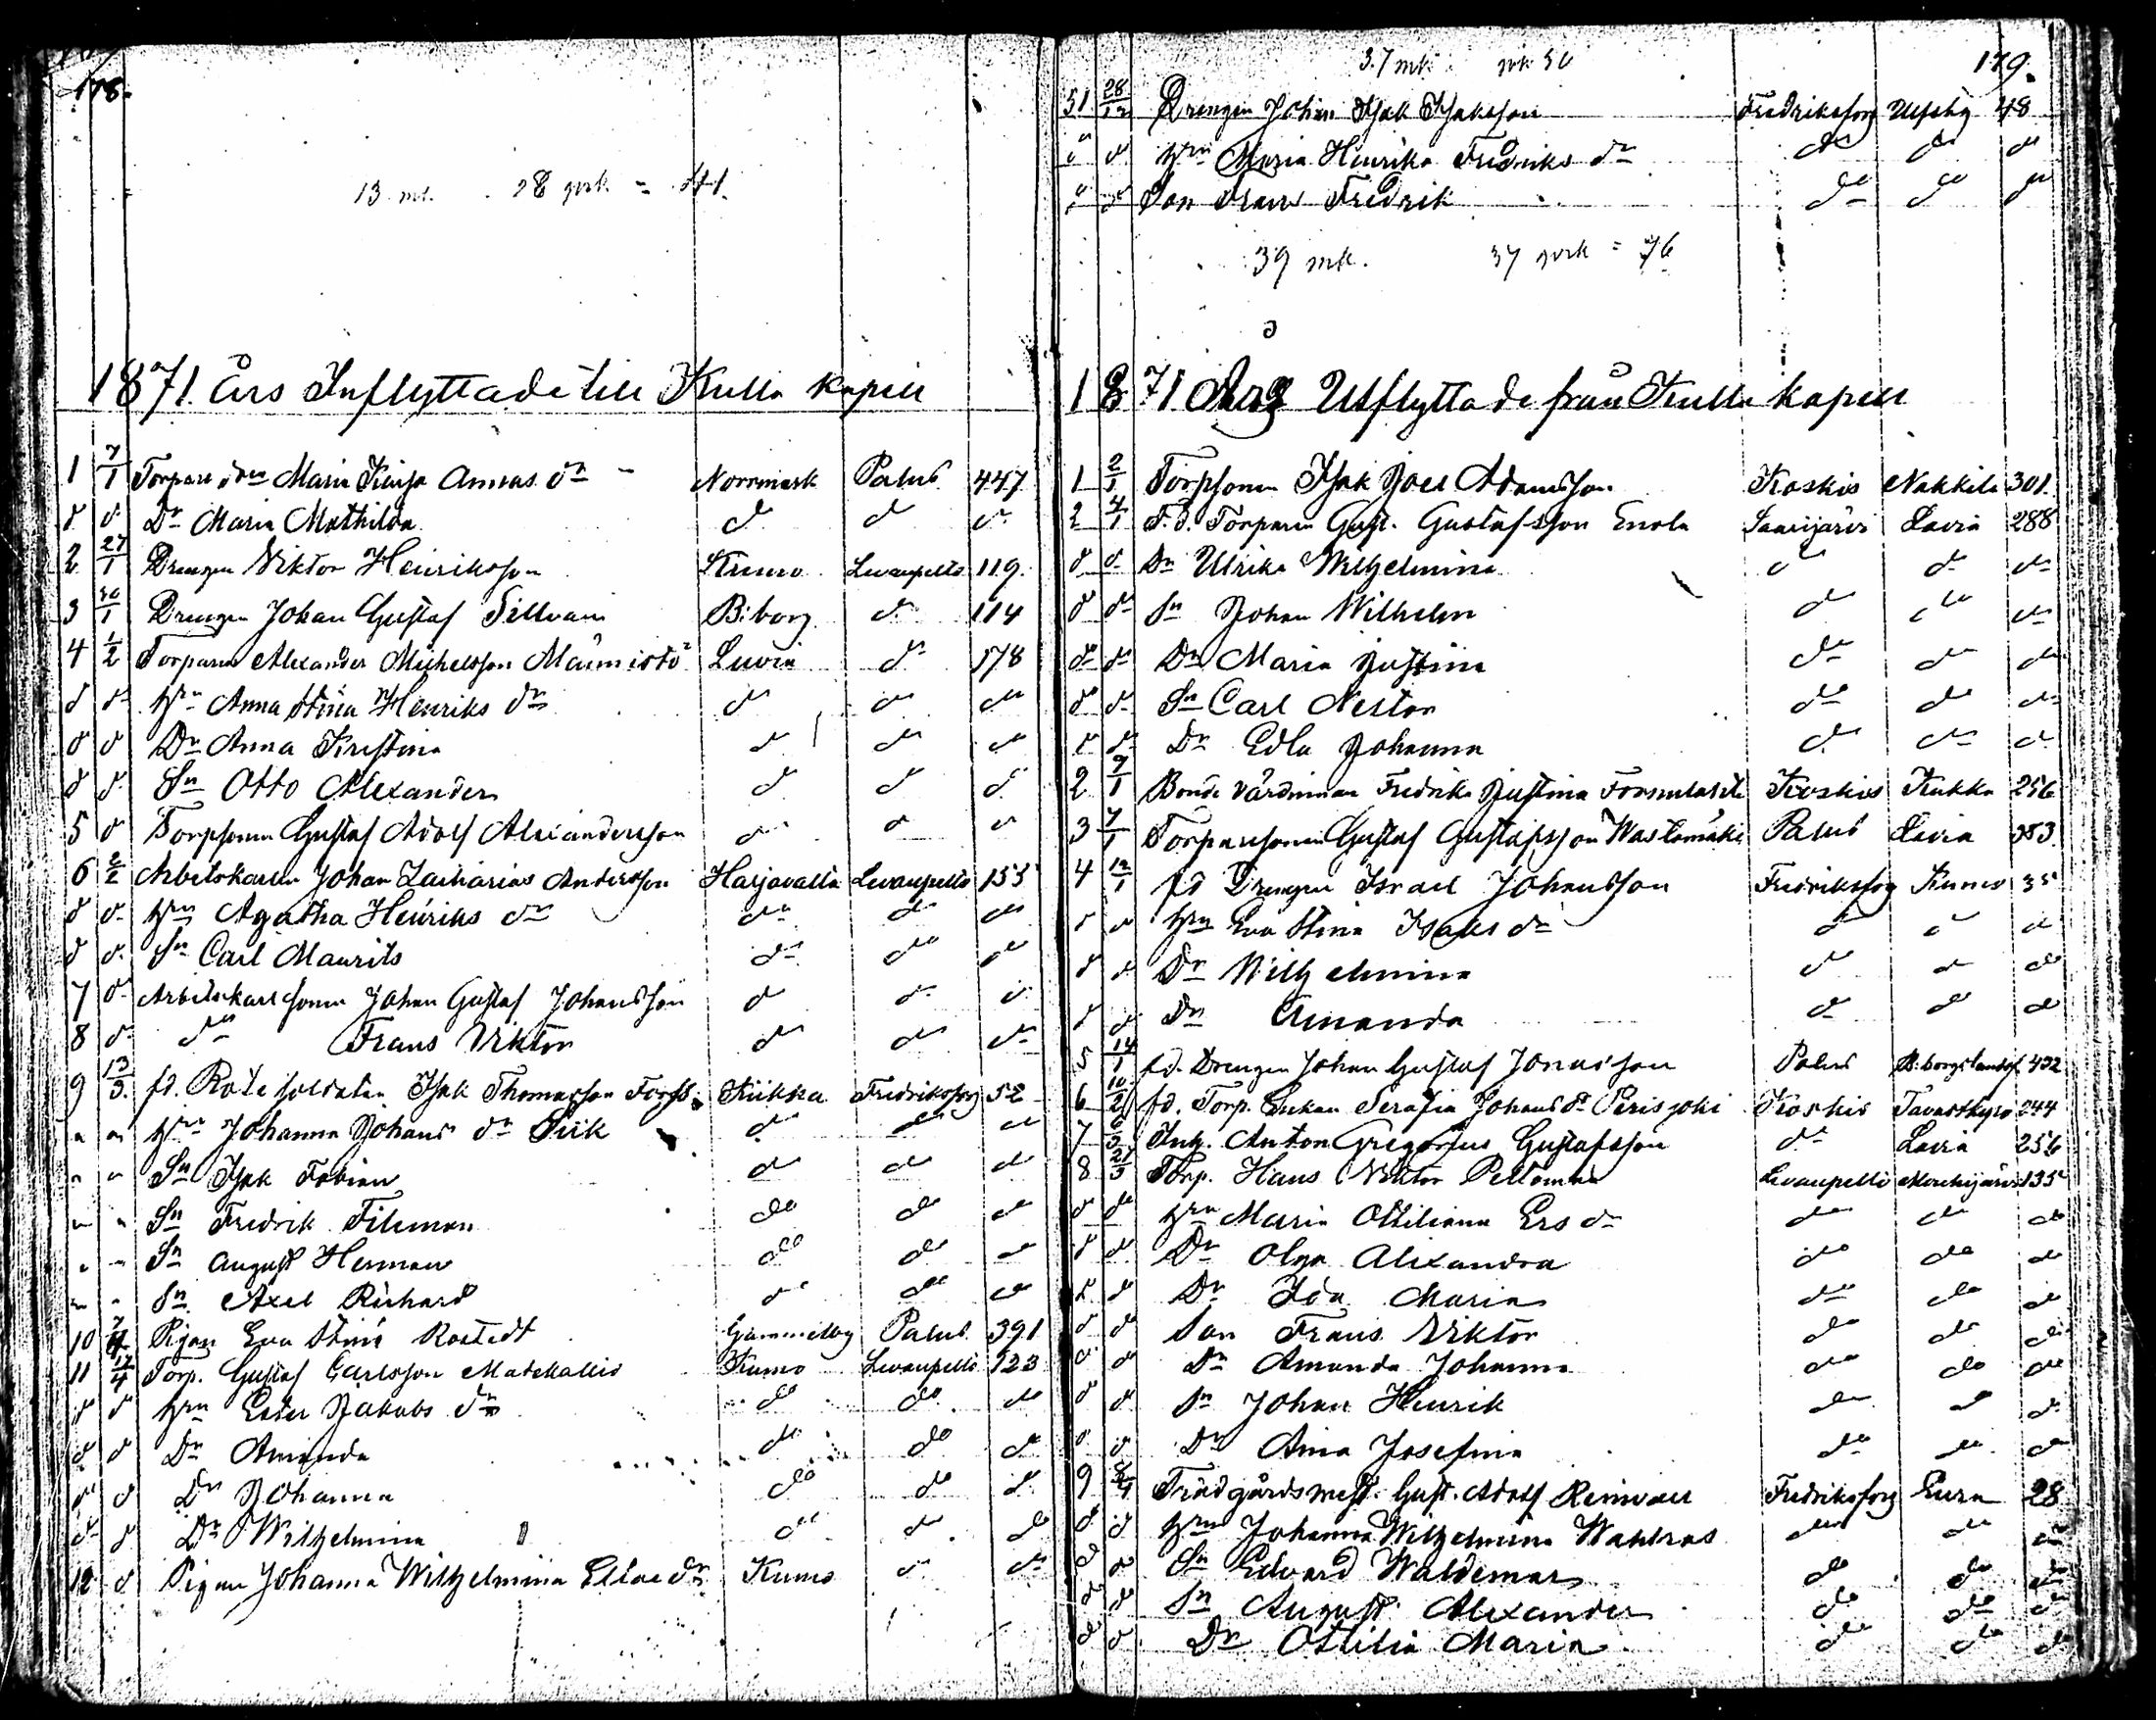 178.
13 mk. 28 qvk = 41.
1871 års Inflyttade till Kulla kapell
1 7/1 Torpare d:n Maria Kaisa Annas dr Norrmark Palus 447
d d Dr Maria Mathilda d d d
2 27/1 Drengen Viktor Henriksson Kumo Levanpelto 119.
3 30/1 Drengen Johan Gustaf Sillvan B:borg d 114
4 1/2 Torparen Alexander Michelsson Mäimistö Luvia d 178
d d Hru Anna Stina Henriks dr d d d
d d Dr Anna Kristina d d d
d d Sn Otto Alexander d d d
5 d Torpsonen Gustaf Adolf Alexandersson d d d
6 2/2 Arbetskarlen Johan Zacharias Andersson Harjavalla Levanpelto 155
d d Hru Agatha Henriks dr do do do
d d Sn Carl Maurits do do do
7 d Arbetskarlsonen Johan Gustaf Johansson d d d
8 d do Frans Viktor do do do
9 13/3 fd. Rotesoldaten Isak Thomasson Forss Kiikka Fredriksforg 52
" " Hru Johanna Johans dr Siik do do do
" " Sn Isak Fabian do do do
" " Sn Fredrik Fileman do do do
" " Sn August Herman do do do
" " Sn Axel Richard do do do
10 7/4 Pigan Eva Stina Rostedt Gammelby Palus 391
11 17/4 Torp. Gustaf Carlsson Matekallio Kumo Levanpelto 123
d d Hru Ester Jakobs dr do do do
d d Dr Amanda do do do
d d Dr Johanna do do do
d d Dr Wilhelmina do do do
12 d Pigan Johanna Wilhelmina Elias dr Kumo d do
37 mk. qvk 36
179.
51 28/12 Drengen Johan Isak Isaksson Fredriksforg Ulfsby 48
d d Hru Maria Henrika Fredriks dr do do do
d d Son Frans Fredrik do do do
39 mk. 37 qvk = 76
1871 Års Utflyttade från Kulla kapell
1 2/1 Torpsonen Isak Joel Adamsson Koskis Nakkila 301.
2 4/1 F.d. Torparen Gust. Gustafsson Enola Saarijärvi Lavia 288
d d Dr Ulrika Wilhelmina d do do
d d Sn Johan Wilhelm d do do
d d Dr Maria Justina do do do
d d Sn Carl Nestor do do do
d d Dr Edla Johanna do do do
2 7/1 Bonde värdinnan Fredrika Justina Koskis Kiukka 256
3 7/1 Torparesonen Gustaf Gustafsson Wastamäki Palus Lavia 383
4 12/1 fd Drengen Israel Johansson Fredriksforg Kumo 35
d d Hru Eva Stina Isaks dr d d d
d d Dr Wilhelmina do do do
d d Dr Amanda do do do
5 14/1 f.d. Drengen Johan Gustaf Jonasson Palus B:borgs landsf. 432
6 10/2 fd. Torp. Enkan Serafia Johans dr Perisjoki Koskis Tavastkyro 244
7 6/3 Inh. Anton Gregorius Gustafsson do Lavia 256
8 21/3 Torp. Hans Viktor Peltomaa Levanpelto Mouhijärvi 135
d do Hru Maria Ottiliana Ers dr do do do
d d Dr Olga Alexandra do do do
d d Dr Ida Maria do do do
d d Son Frans Viktor do do do
d d Dr Amanda Johanna do do do
d d Sn Johan Henrik do do do
d d Dr Aina Josefina do do do
9 Trädgårdsmest. Gust. Adolf Reinvall Fredriksforg Eura 28
d d Hru Johanna Wilhelmina Wahlros do do do
do d Sn Edvard Waldemar do do do
d d Sn August Alexander do do do
do d Dr Ottilia Maria do do do